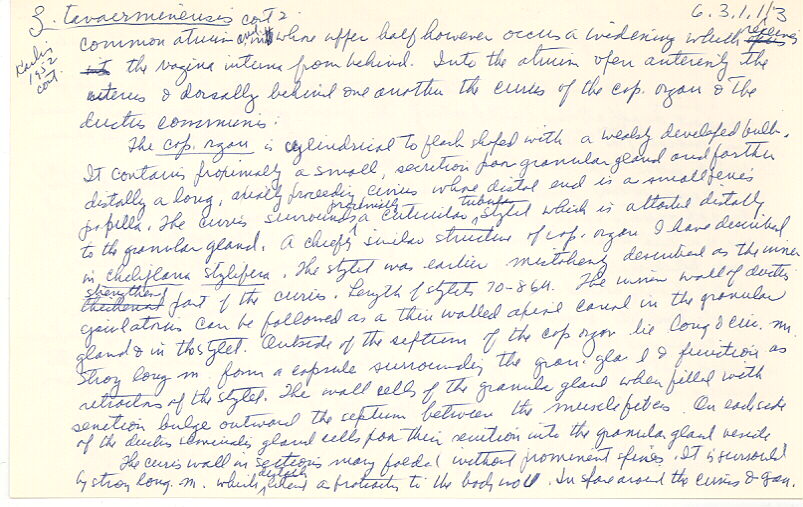 S. tavaerminensis cont 2. 6.3.1.1/3
Karling 1952 cont.
common atrium in whose upper half however occurs a widening which receives
the vagina interna from behind. Into the atrium open anteriorly the
uterus & dorsally behind one another the cirrus of the cop. organ & the
ductus communis.
The cop. organ is cylindrical to flask shaped with a weakly developed bulb.
It contains proximally a small, secretion poor granular gland and farther
distally a long, distally proceeding cirrus whose distal end is a small penis
papilla. The cirrus surrounds proximally a cuticular tubular stylet which is attached distally
to the granular gland. A chiefly similar structure of cop. organ I have described
in Cheliplana stylifera. The stylet was earlier mistakenly described as the inner
strengthened part of the cirrus. Length of stylets 70-86µ. The inner wall of ductus
ejaculatorius can be followed as a thin walled apical canal in the granular
gland & in the stylet. Outside of the septum of the cop organ lie long & circ. m.
Strong long m. form a capsule surrounding the gran. gland & function as
retractors of the stylet. The wall cells of the granular gland when filled with
secretion bulge outward the septum between the muscle fibers. On each side
of the ductus seminalis gland cells pour their secretion into the granular gland vesicle
The cirrus wall in sections may folded without prominent spines. It is surround
by strong long. m. which distally extend as protractors to the body wall. In space around the cirrus & gran.